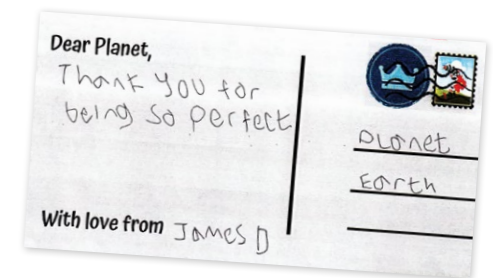 Dear Planet,
Thank you for
being so perfect
With love from James D
PLanet
Earth